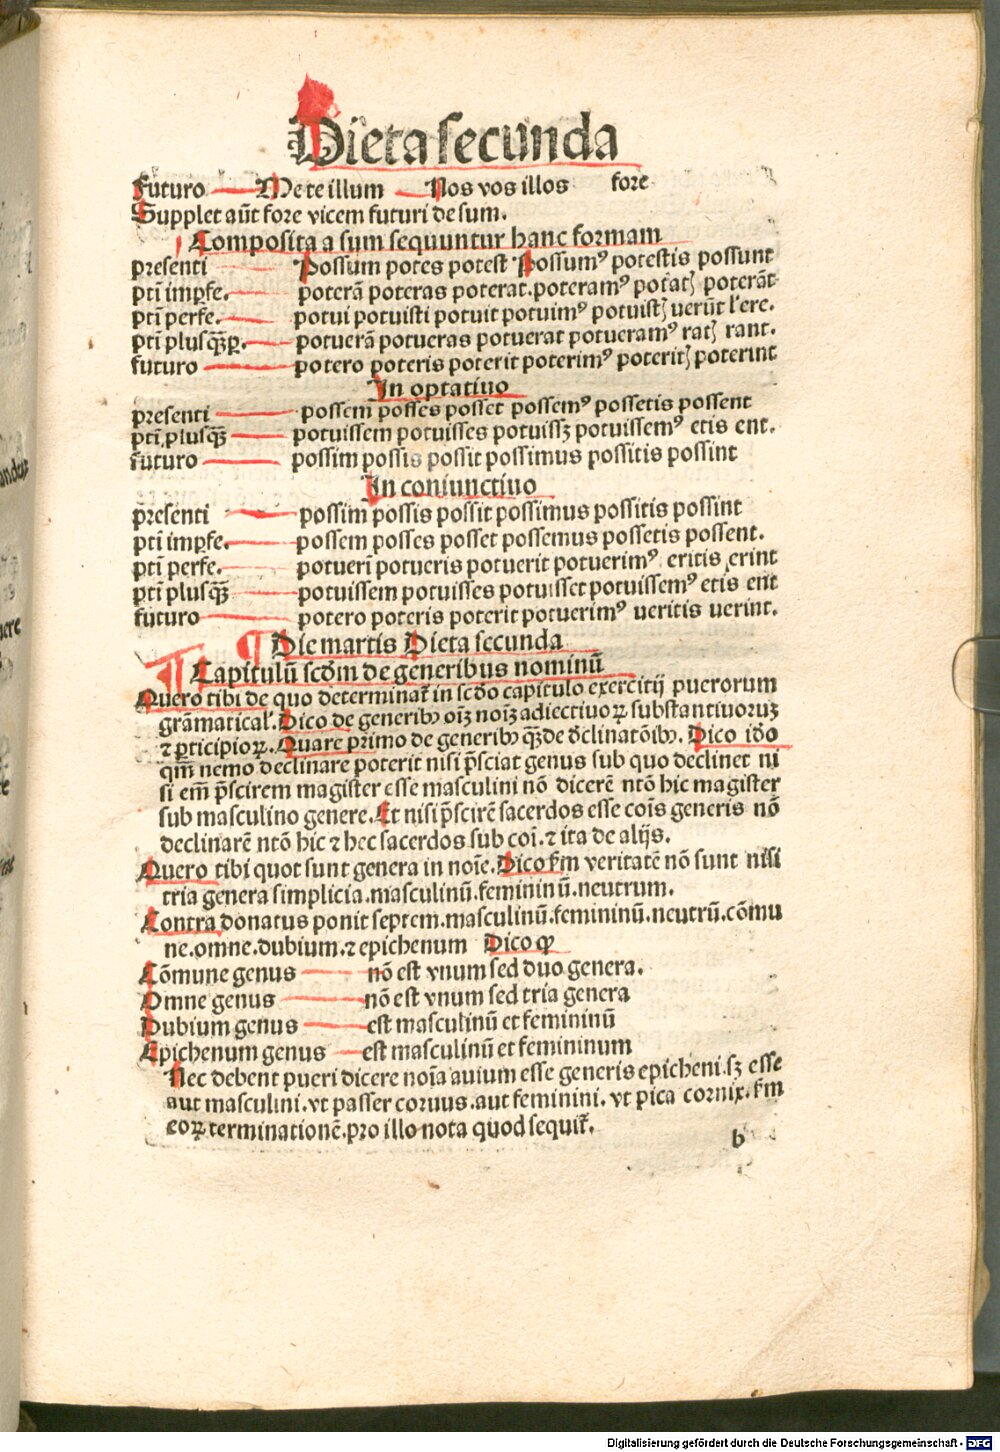 Dieta secunda
futuro Me te illum Nos vos illos fore
Supplet aūt fore vicem futuri de sum.
Composita a sum sequuntur hanc formam
presenti Possum potes potest Possumꝰ potestis possunt
ptī impfe. poterā poteras poterat.poteramꝰ potatꝭ poterāt
ptī perfe. potui potuisti potuit potuimꝰ potuistꝭ verūt l'ere.
ptī plusqꝫp. potuerā potueras potuerat potueramꝰ ratꝭ rant.
futuro potero poteris poterit poterimꝰ poteritꝭ poterint
In optatiuo
presenti possem posses posset possemꝰ possetis possent
ptī.plusqꝫ potuissem potuisses potuissꝫ potuissemꝰ etis ent.
futuro possim possis possit possimus possitis possint
In coniunctiuo
presenti possim possis possit possimus possitis possint
ptī impfe. possem posses posset possemus possetis possent.
ptī perfe. potueri potueris potuerit potuerimꝰ eritis erint
ptī plusqꝫ potuissem potuisses potuisset potuissemꝰ etis ent
futuro potero poteris poterit potuerimꝰ ueritis uerint.
¶ Die martis Dieta secunda
¶ Capitulū scd̄m de generibus nominū
Quero tibi de quo determinat̄ in scd̄o capitulo exercitij puerorum
grāmatical'. Dico de generibꝰ oīꝫ noīꝫ adiectiuoꝝ substantiuorum
⁊ ꝑticipioꝝ. Quare primo de generibꝰ qꝫ de d̄clinatōibꝰ. Dico id̄o
qm̄ nemo declinare poterit nisi p̄sciat genus sub quo declinet ni
si em̄ p̄scirem magister esse masculini nō dicerē ntō hic magister
sub masculino genere. Et nisi p̄scirē sacerdos esse coīs generis nō
declinarē ntō hic ⁊ hec sacerdos sub coī. ⁊ ita de alijs.
Quero tibi quot sunt genera in noīe. Dico fm̄ veritatē nō sunt nisi
tria genera simplicia.masculinū.femininū.neutrum.
Contra donatus ponit septem.masculinū.femininū.neutrū.cōmu
ne.omne.dubium.⁊ epichenum Dico ꝙ
Cōmune genus nō est vnum sed duo genera.
Omne genus nō est vnum sed tria genera
Dubium genus est masculinū et femininū
Epichenum genus est masculinū et femininum
Nec debent pueri dicere noīa auium esse generis epicheni.sꝫ esse
aut masculini.vt passer coruus.aut feminini. vt pica cornix. fm̄
eoꝝ terminationē.pro illo nota quod sequit̄.
b
Digitalisierung gefördert durch die Deutsche Forschungsgemeinschaft - DFG